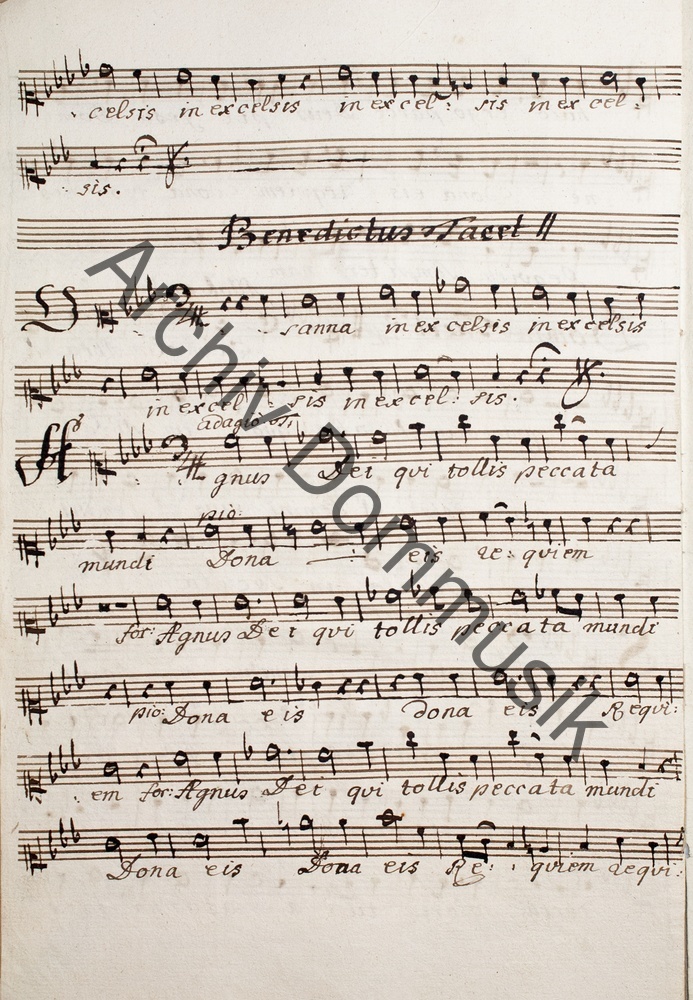 celsis in excelsis in excel: sis in excel:
sis.
Benedictus Tacet ||
sanna in excelsis in excelsis
in excel: sis in excelsis.
adagio
Agnus Dei qui tollis peccata
pio:
mundi Dona eis re: quiem
for: Agnus Dei qui tollis peccata mundi
pio: Dona eis dona eis Requi:
em for: Agnus Dei qui tollis peccata mundi
Dona eis Dona eis Re: quiem requi:
Archiv Dommusik